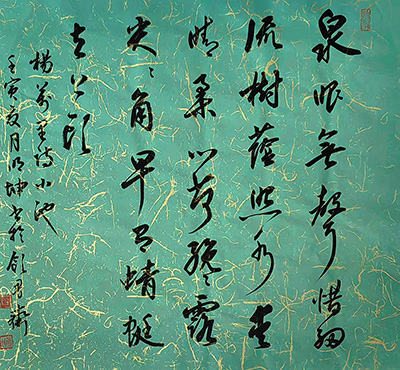 泉眼無聲惜細
流樹蔭照水愛
晴柔小荷纔露
尖〻角早有蜻蜓
立上頭
楊萬里詩小池
壬寅夏月坤書於